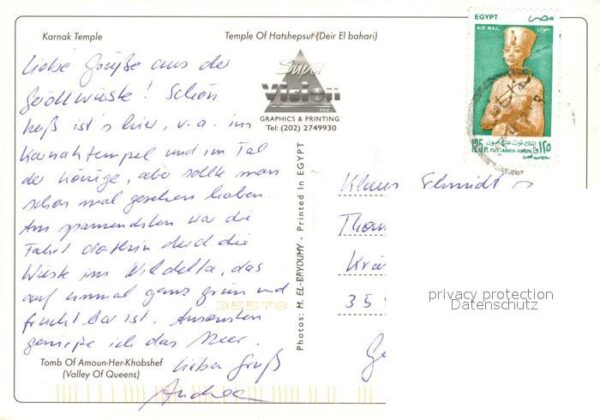 Karnak Temple
Temple Of Hatshepsut (Deir El bahari)
Liebe Grüße aus der
Geröllwüste! Schön
heiß ist's hier, v.a. im
Karnaktempel und im Tal
der Könige, aber sollte man
schon mal gesehen haben.
Am spannendsten war die
Fahrt dorthin durch die
Wüste ins Nildelta, das
auf einmal ganz grün und
fruchtbar ist. Ansonsten
genieße ich das Meer.
Lieber Gruß
Andrea
Tomb Of Amoun-Her-Khobshef
(Valley Of Queens)
Super
Vision
GRAPHICS & PRINTING
Tel: (202) 2749930
Photos: M. EL-BAYOUMY - Printed In EGYPT
EGYPT مصر
AIR MAIL
125 P.
TUT-ANKH-AMUN
١٢٥
Klaus Schmidt
35
35578
privacy protection
Datenschutz